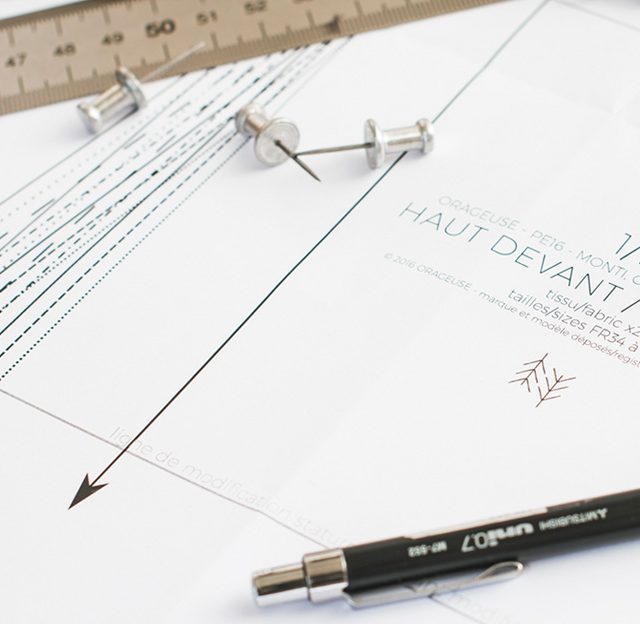 47 48 49 50 51 52
ORAGEUSE - PE16 - MONTI,
HAUT DEVANT /
1/
tissu/fabric x2
tailles/sizes FR34 à
© 2016 ORAGEUSE - marque et modèle déposés/regist
ligne de modification stature
MITSUBISHI
uni 0.7
M7-552